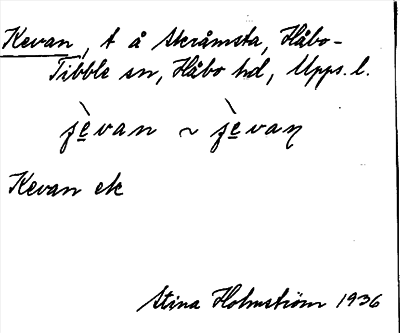 Kevan, t å Skråmsta, Håbo-
Tibble sn, Håbo hd, Upps. l.
jèvan ~ jèvaṇ
Kevan ek
Stina Holmström 1936